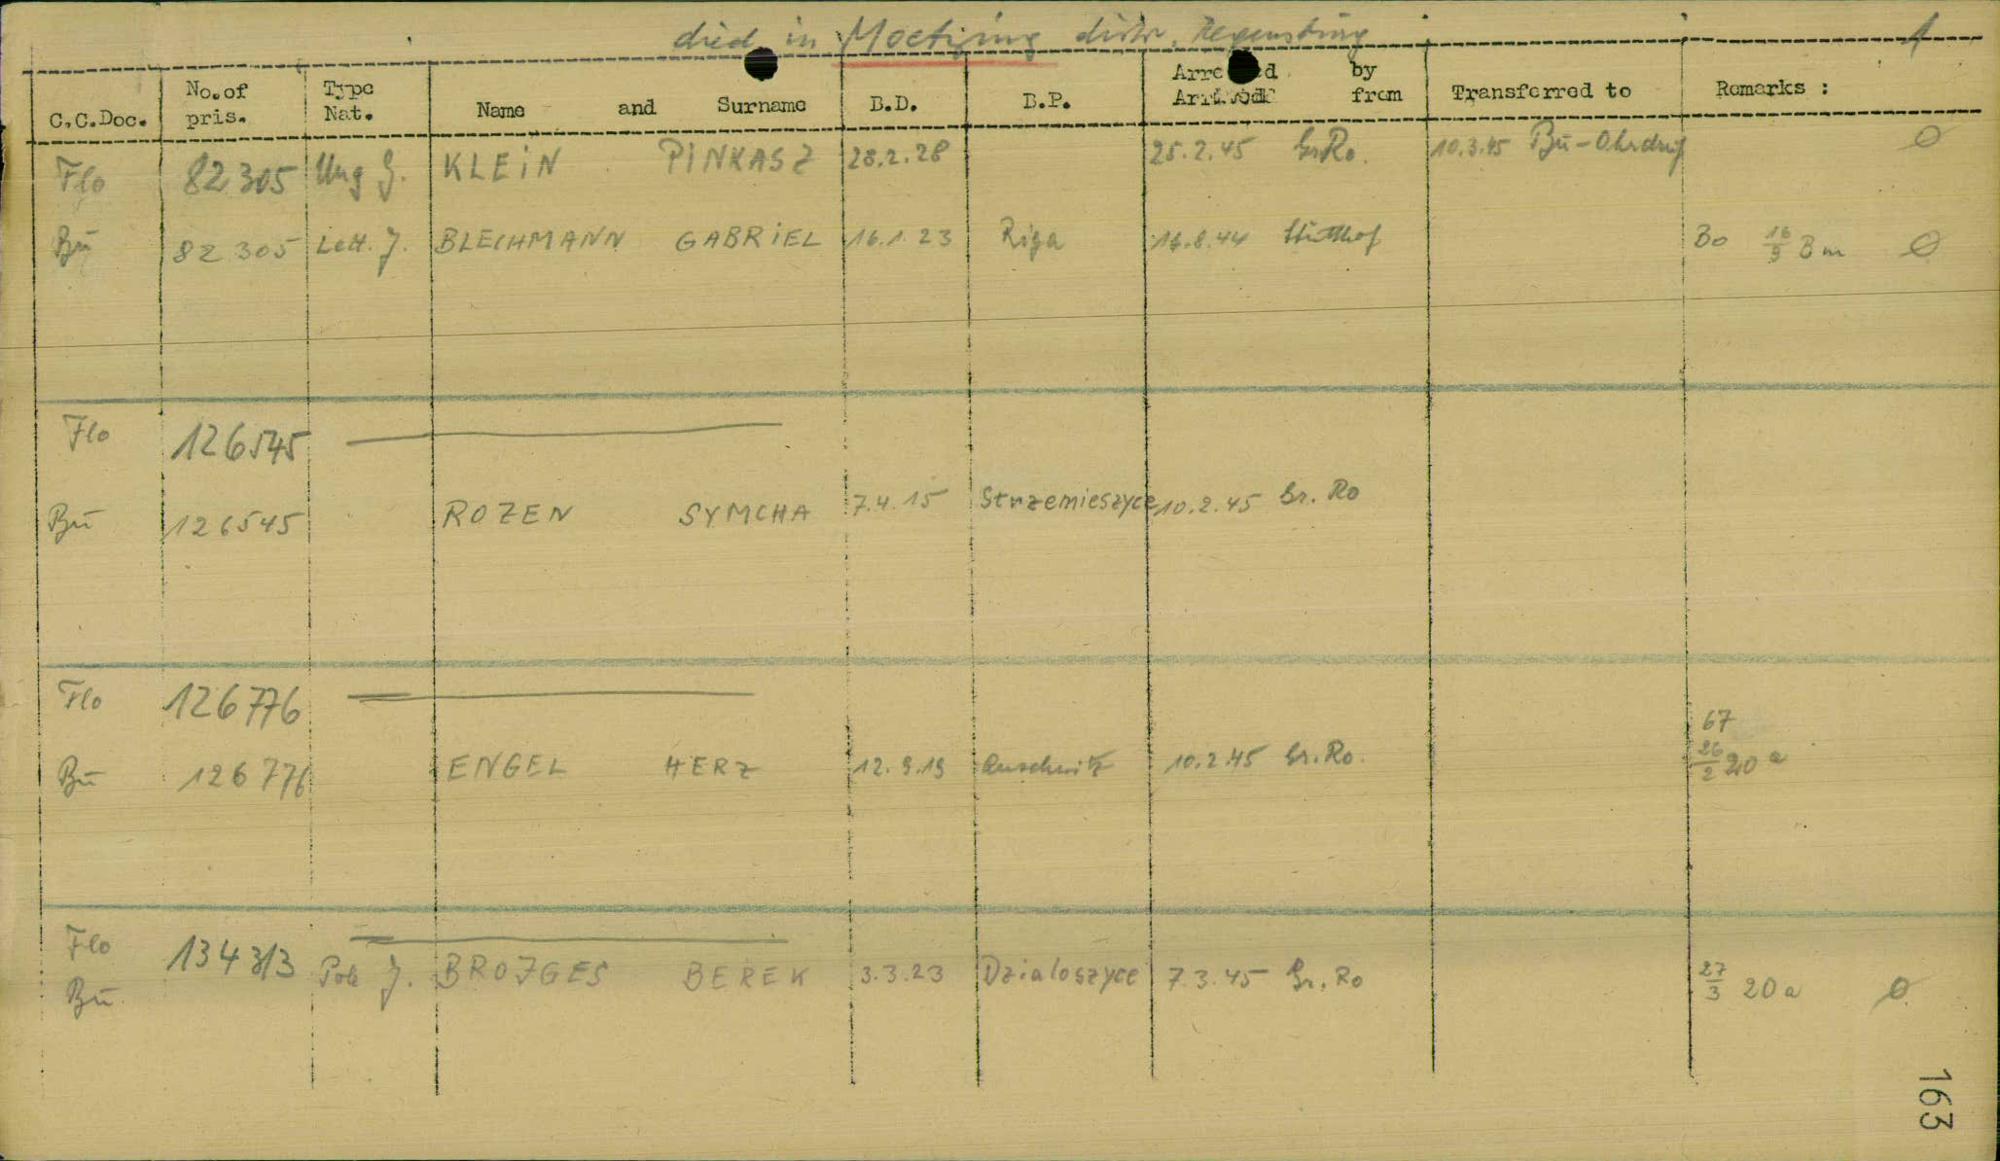 died in Moetzing distr. Regensburg 1
C.C.Doc. No. of pris. Type Nat. Name and Surname B.D. B.P. Arrested by Arrived from Transferred to Remarks :
Flo 82305 Ung J. KLEIN PINKASZ 28.2.28 25.2.45 Gr.Ro. 10.3.45 Bu-Ohrdruf Ø
Bu 82305 Lett. J. BLECHMANN GABRIEL 16.1.23 Riga 16.8.44 Stutthof 30 16/9 Bm Ø
Flo 126545
Bu 126545 ROZEN SYMCHA 7.4.15 Strzemieszyce 10.2.45 Gr. Ro
Flo 126776
67
Bu 126776 ENGEL HERZ 12.9.19 Auschwitz 10.2.45 Gr.Ro. 26/2 20a
Flo 134313
Bu Pole J. BROJGES BEREK 3.3.23 Dzialoszyce 7.3.45 Gr. Ro 27/3 20a Ø
163